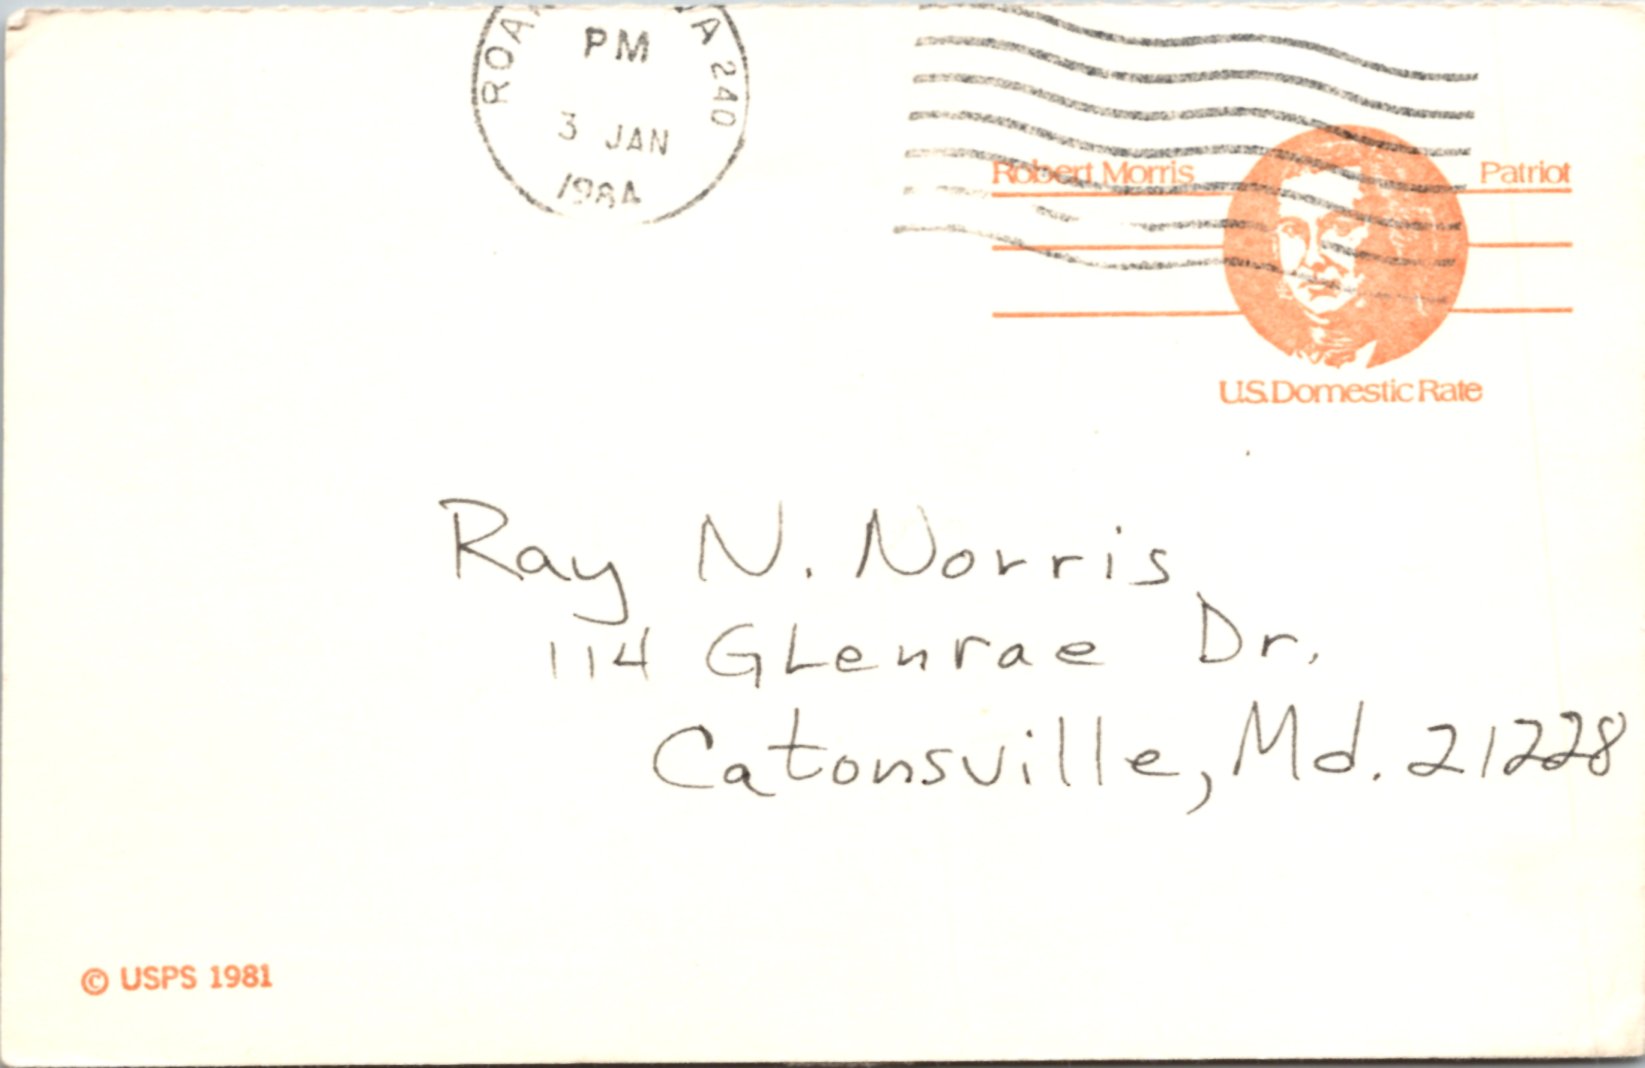 PM
3 JAN
1984
A 240
Robert Morris Patriot
U.S. Domestic Rate
Ray N. Norris
114 Glenrae Dr.
Catonsville, Md. 21228
© USPS 1981